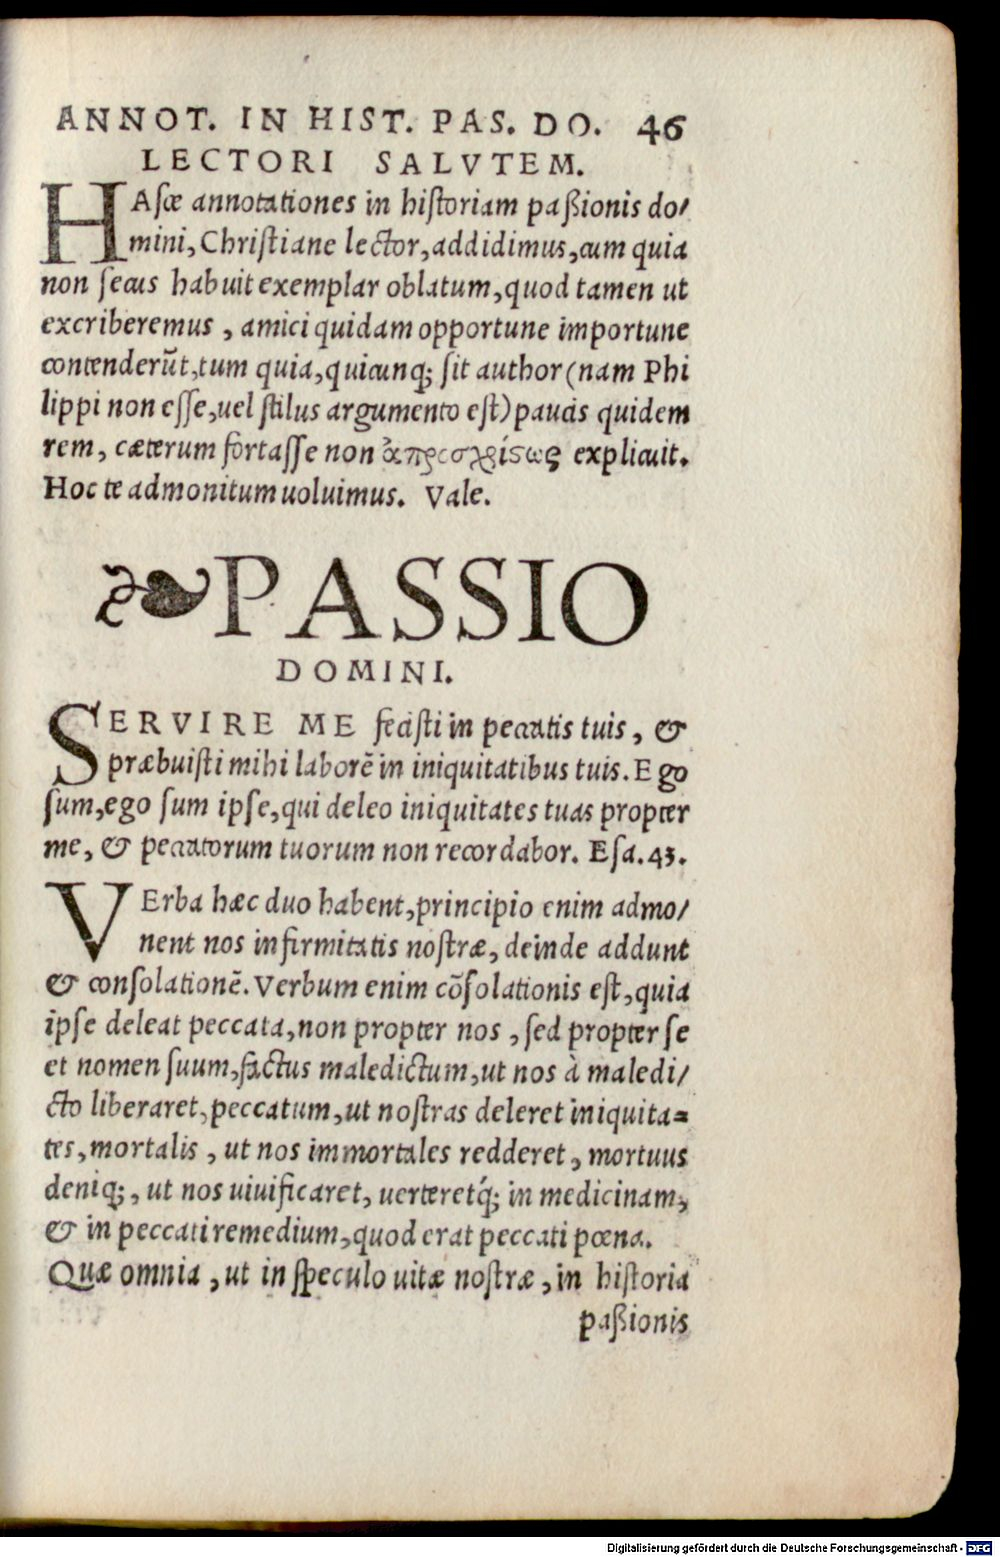 ANNOT. IN HIST. PAS. DO. 46
LECTORI SALVTEM.
HAſce annotationes in hiſtoriam paßionis do/
mini, Chriſtiane lector, addidimus, cum quia
non ſecus habuit exemplar oblatum, quod tamen ut
excriberemus, amici quidam opportune importune
contenderūt, tum quia, quicunq; ſit author (nam Phi
lippi non eſſe, uel ſtilus argumento eſt) paucis quidem
rem, cæterum fortaſſe non explicuit.
Hoc te admonitum uoluimus. Vale.
❧PASSIO
DOMINI.
SERVIRE ME feciſti in peccatis tuis, &
præbuiſti mihi laborē in iniquitatibus tuis. Ego
ſum, ego ſum ipſe, qui deleo iniquitates tuas propter
me, & peccatorum tuorum non recordabor. Eſa. 43.
VErba hæc duo habent, principio enim admo/
nent nos infirmitatis noſtræ, deinde addunt
& conſolationē. Verbum enim cōſolationis eſt, quia
ipſe deleat peccata, non propter nos, ſed propter ſe
et nomen ſuum, factus maledictum, ut nos à maledi/
cto liberaret, peccatum, ut noſtras deleret iniquita=
tes, mortalis, ut nos immortales redderet, mortuus
deniq;, ut nos uiuificaret, uerteretq́; in medicinam,
& in peccati remedium, quod erat peccati pœna.
Quæ omnia, ut in ſpeculo uitæ noſtræ, in hiſtoria
paßionis
Digitalisierung gefördert durch die Deutsche Forschungsgemeinschaft - DFG